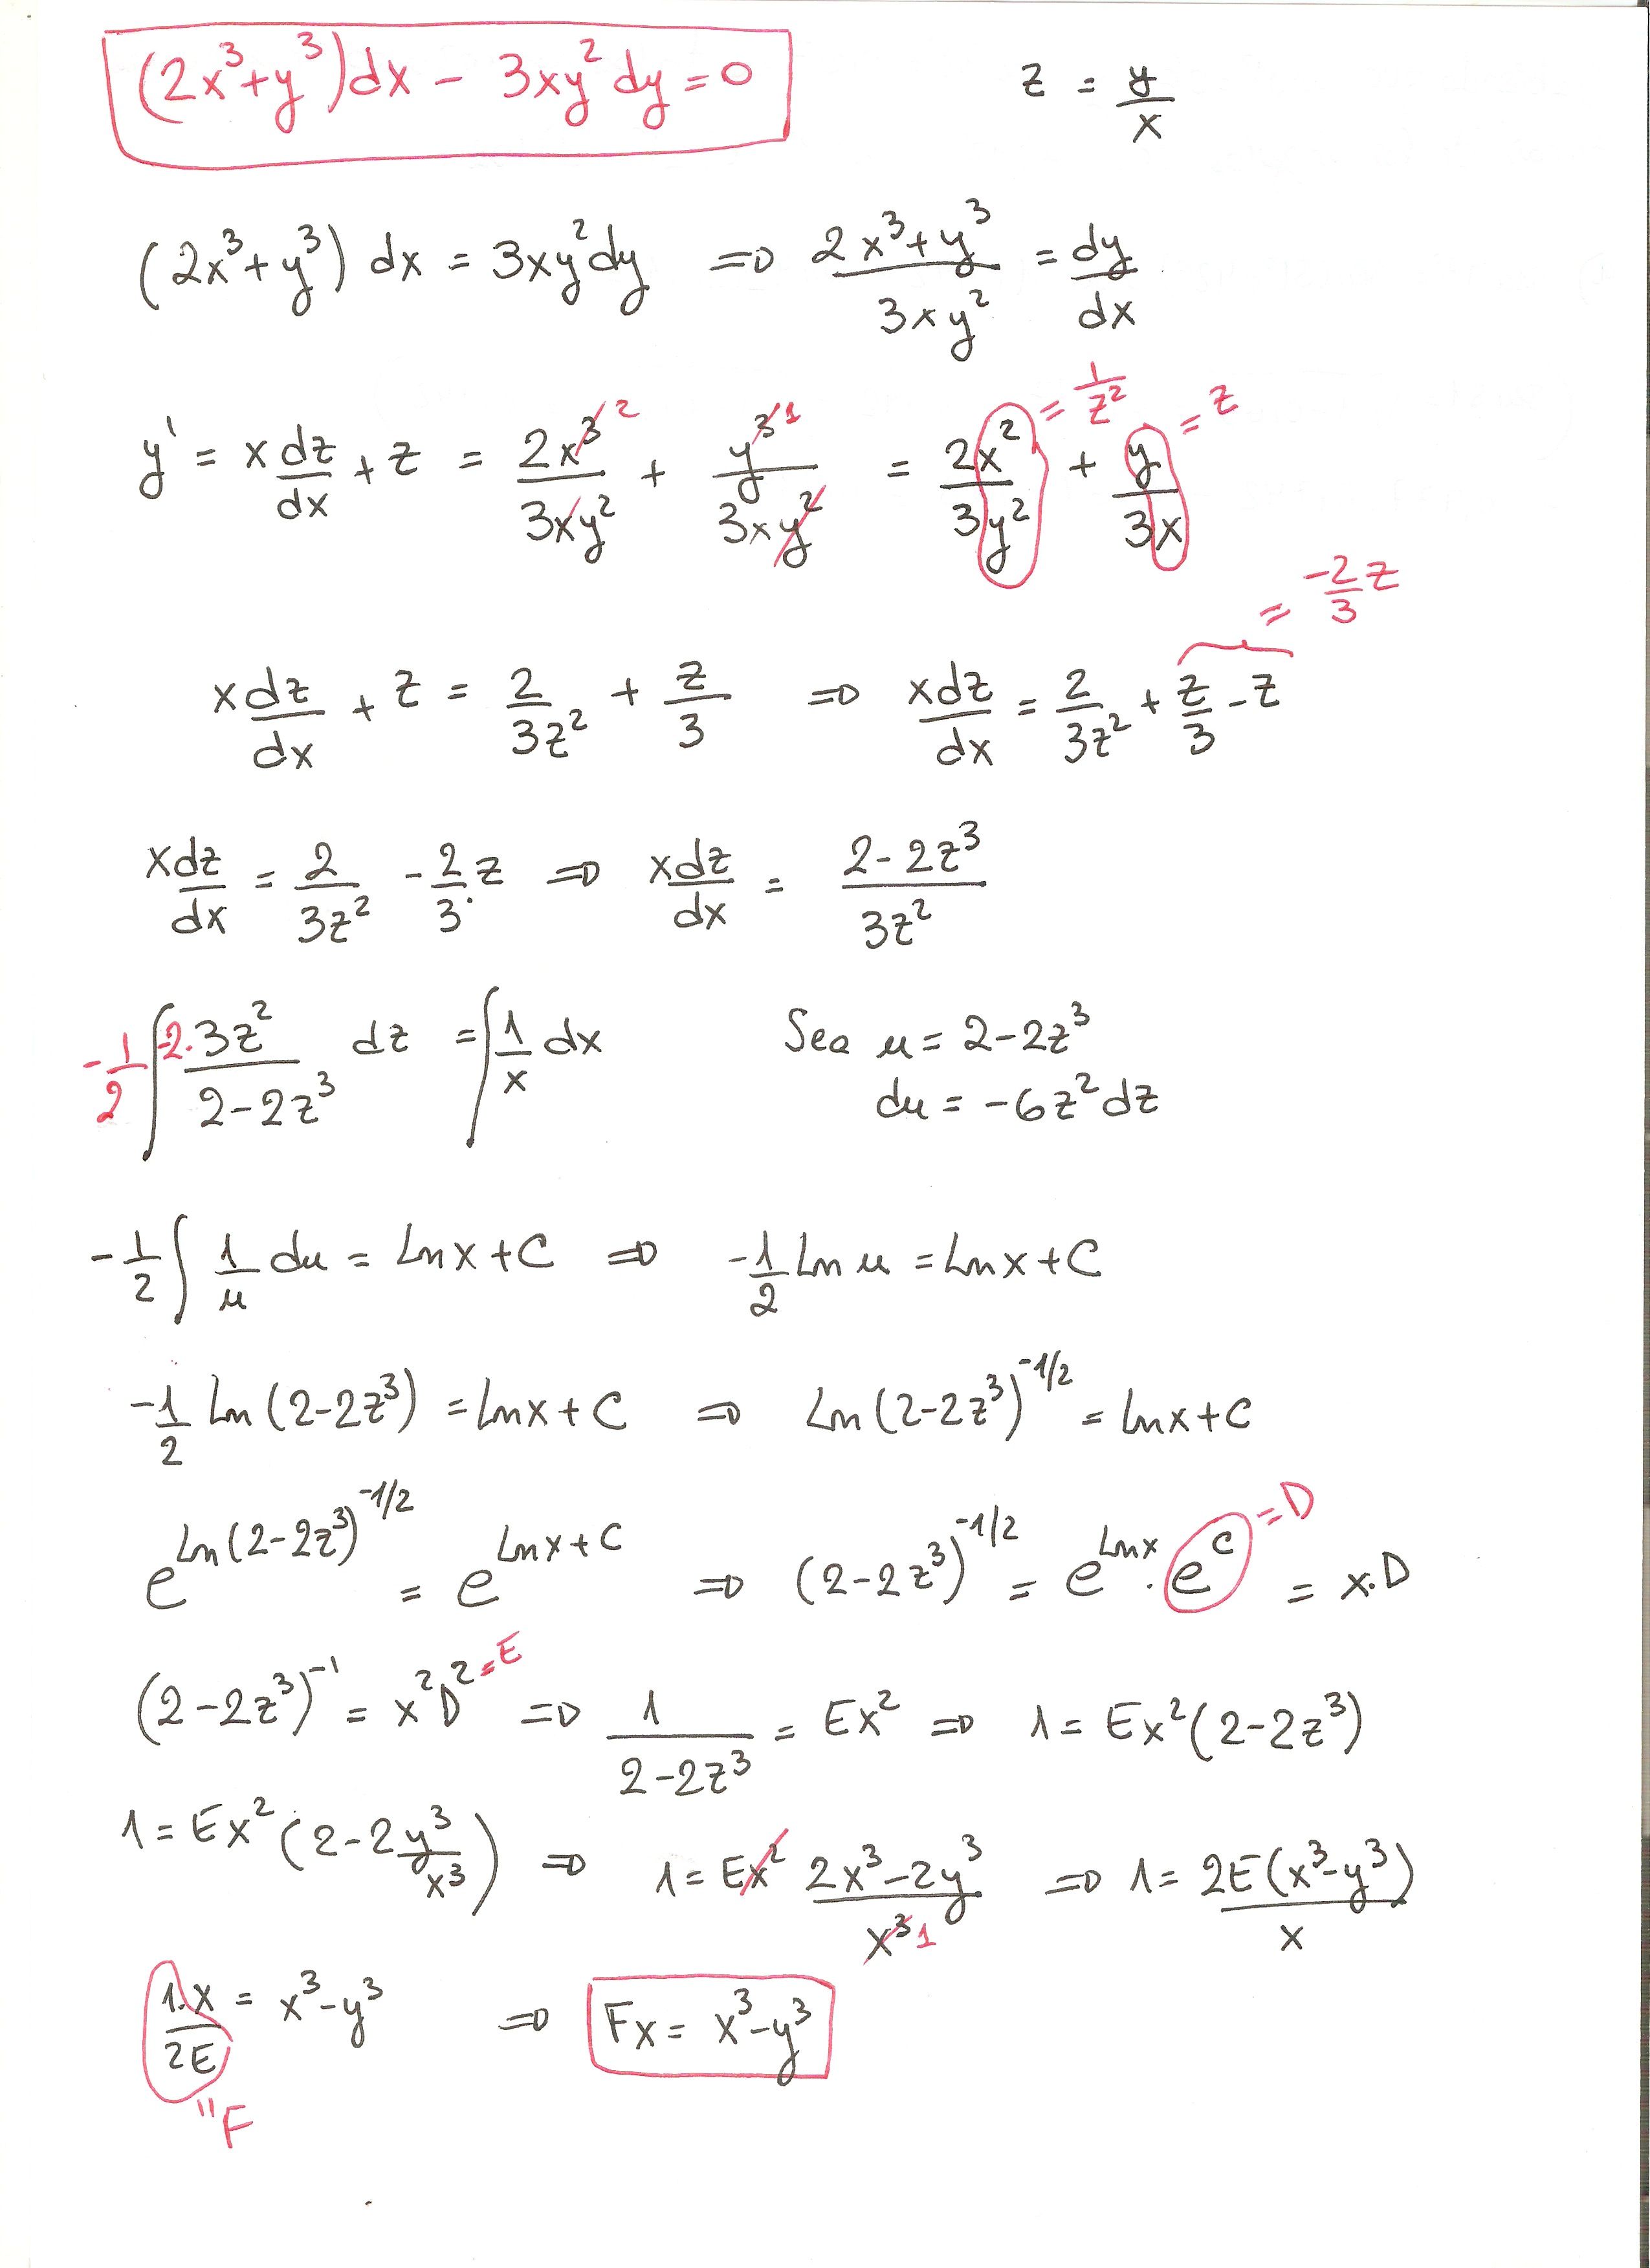 (2x³+y³)dx - 3xy²dy=0    z = y/x
(2x³+y³) dx = 3xy²dy ⇒ (2x³+y³)/(3xy²) = dy/dx
y' = x dz/dx + z = 2x³ ²/(3xy²) + y³ ¹/(3xy²) = 2x²/(3y²) + y/(3x)  = 1/z²  = z
= -2/3 z
x dz/dx + z = 2/(3z²) + z/3 ⇒ x dz/dx = 2/(3z²) + z/3 - z
x dz/dx = 2/(3z²) - 2/3·z ⇒ x dz/dx = (2-2z³)/(3z²)
-1/2 ∫ (-2·3z²)/(2-2z³) dz = ∫ 1/x dx    Sea u = 2-2z³
du = -6z²dz
-1/2 ∫ 1/u du = Lnx+C ⇒ -1/2 Ln u = Lnx+C
-1/2 Ln(2-2z³) = Lnx+C ⇒ Ln(2-2z³)^(-1/2) = Lnx+C
e^(Ln(2-2z³)^(-1/2)) = e^(Lnx+C) ⇒ (2-2z³)^(-1/2) = e^(Lnx)·e^C = x·D  =D
(2-2z³)⁻¹ = x²D² =E ⇒ 1/(2-2z³) = Ex² ⇒ 1 = Ex²(2-2z³)
1 = Ex²(2-2y³/x³) ⇒ 1 = Ex² (2x³-2y³)/(x³ 1) ⇒ 1 = 2E(x³-y³)/x
1·x/2E = x³-y³ ⇒ Fx = x³-y³
"F